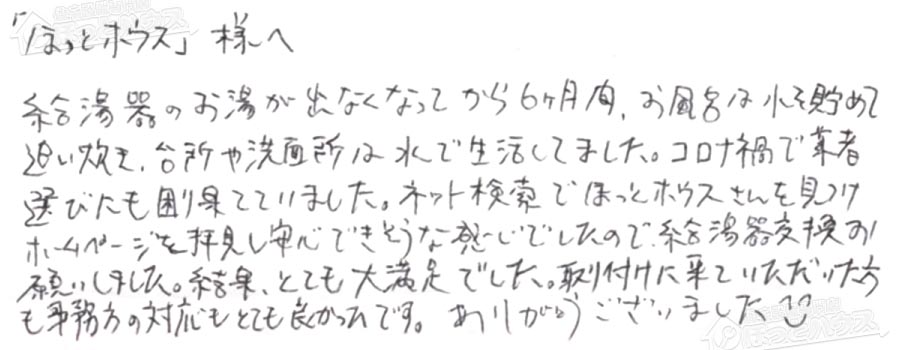 「ほっとホウス」様へ
給湯器のお湯が出なくなってから6ヶ月間、お風呂は水を貯めて
追い炊き、台所や洗面所は水で生活してました。コロナ禍で業者
選びたも困り果てていました。ネット検索でほっとホウスさんを見つけ
ホームページを拝見し安心できそうな感じでしたので、給湯器交換お
願いしました。結果、とても大満足でした。取り付けに来ていただいた方
も事務方の対応もとても良かったです。ありがとうございました